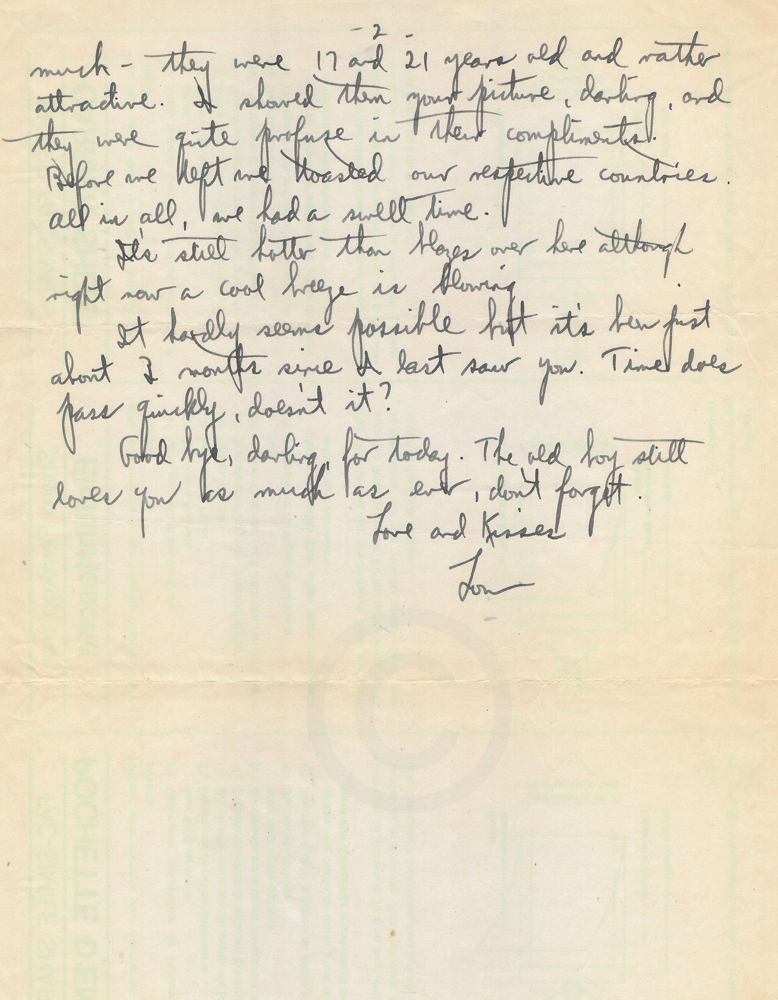 - 2 -
much - they were 17 and 21 years old and rather
attractive. I showed them your picture, darling, and
they were quite profuse in their compliments.
Before we left we toasted our respective countries.
all in all, we had a swell time.
It's still hotter than blazes over here although
right now a cool breeze is blowing.
It hardly seems possible but it's been just
about months since I last saw you. Time does
pass quickly, doesn't it?
Good bye, darling, for today. The old boy still
loves you as much as ever, don't forget.
Love and Kisses
Lou
©
POCHETTE D'EN
FAC-SIMILE